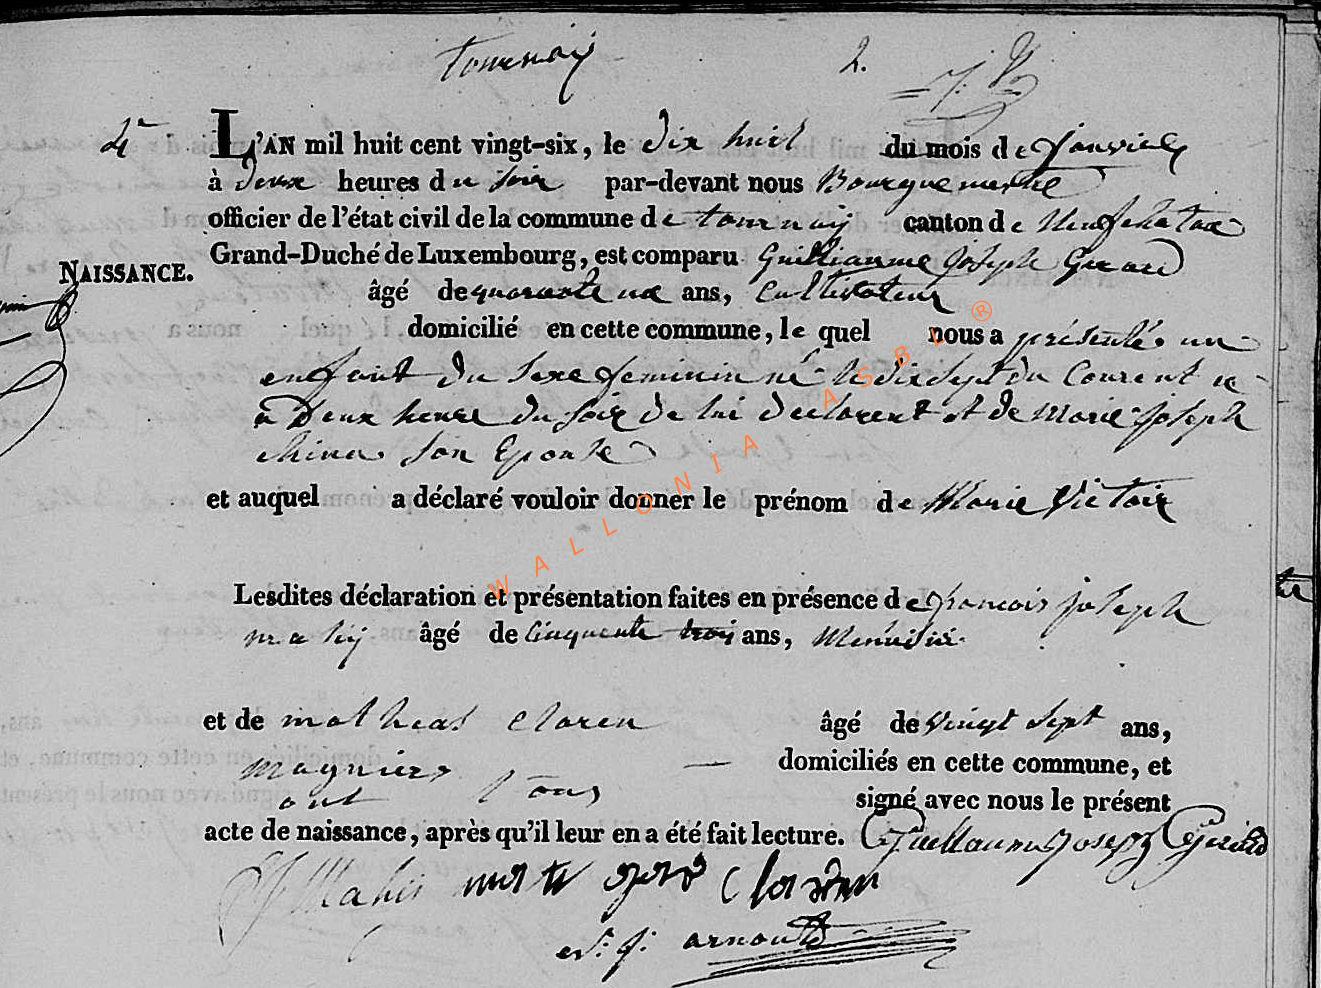 tournay 2.
L'AN mil huit cent vingt-six, le dix huit du mois de Janvier
à deux heures du soir par-devant nous Bourguemestre
officier de l'état civil de la commune de tournay canton de Neufchatau
Grand-Duché de Luxembourg, est comparu Guilliaume Joseph Gerard
NAISSANCE.
âgé de quarante ans, Cultivateur
domicilié en cette commune, le quel nous a présenté un
enfant du sexe feminin né le dix sept du Courent
a Deux heure du soir de lui declarent et de Marie Joseph
china son Epouse
et auquel a déclaré vouloir donner le prénom de Marie Victoir
WALLONIA ASBL ®
Lesdites déclaration et présentation faites en présence de francois Joseph
mahy âgé de cinquente trois ans, Menuisie
et de matheas Claren âgé de vingt sept ans,
magnier — domiciliés en cette commune, et
ont tous signé avec nous le présent
acte de naissance, après qu'il leur en a été fait lecture. Guellaume Joseph Gerard
arnould